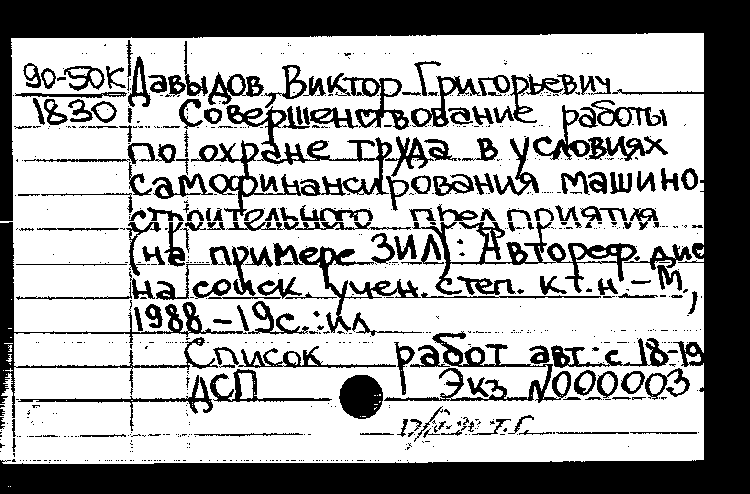 90-50К Давыдов, Виктор Григорьевич.
1830 Совершенствование работы
по охране труда в условиях
самофинансирования машино-
строительного предприятия
(на примере ЗИЛ): Автореф. дис
на соиск. учен. степ. к.т.н. - М.,
1988. - 19с.: ил.
Список работ авт.: с 18-19
ДСП Экз №000003.
17/IV-90 т.г.